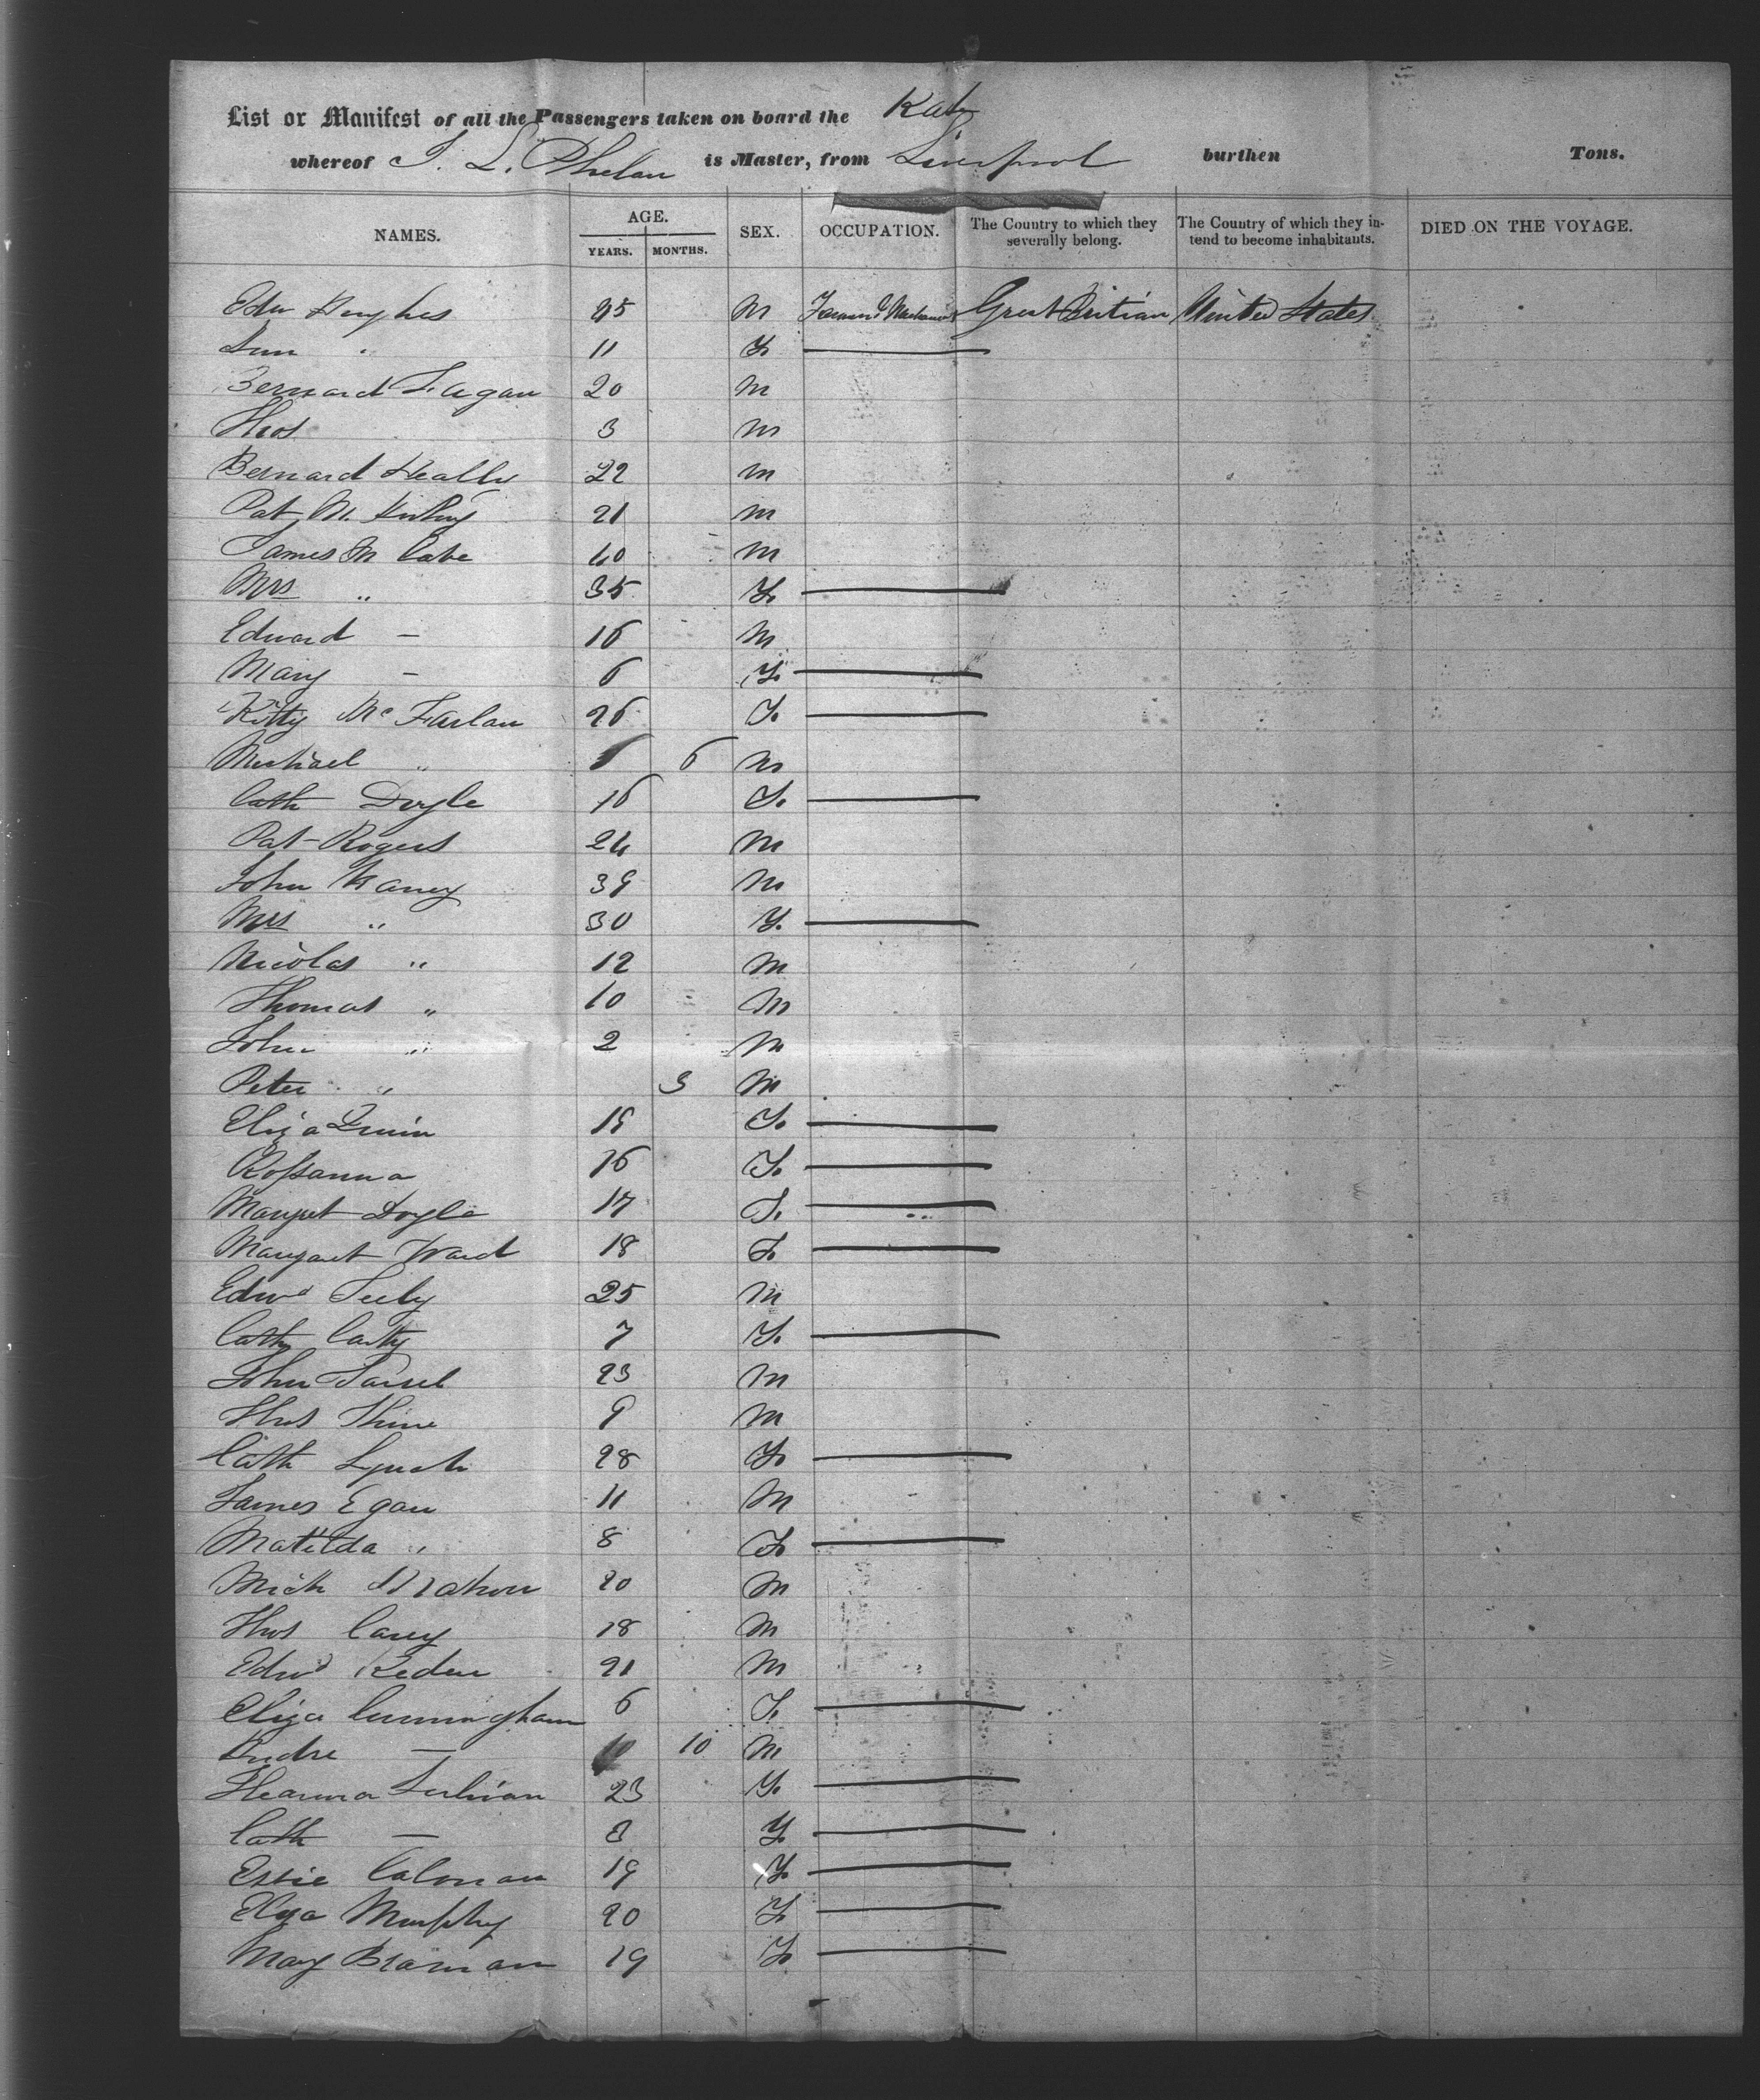 List or Manifest of all the Passengers taken on board the Katy
whereof J. L. Phelan is Master, from Liverpool burthen Tons.
NAMES. AGE. YEARS. MONTHS. SEX. OCCUPATION. The Country to which they severally belong. The Country of which they intend to become inhabitants. DIED ON THE VOYAGE.
Edw Hughes 25 M Great Britian United States
" 11 F. —
Bernard Fagan 20 M
Thos 3 M
Bernard Heally 22 M
Pat M. 21 M
James Mc Cabe 40 M
Mrs " 35 F. —
Edward — 16 M
Mary — 6 F. —
Kitty Mc Farlan 26 F. —
Michael " 6 M
Cath Doyle 16 F. —
Pat Rogers 24 M
John Naney 39 M
Mrs " 30 F. —
Nicolas " 12 M
Thomas " 10 M
John " 2 M
Peter " 3 M
Eliza Quin 19 F. —
Rossanna 16 F. —
Margret Doyle 17 F. —
Margaret Ward 18 F. —
Edwd 25 M
Cath Carty 7 F. —
John 23 M
Thos 9 M
Cath Lynch 28 F. —
James Egan 11 M
Matilda " 8 F. —
Mich Mahon 20 M
Thos Carey 18 M
Edwd Reden 21 M
Eliza Cunningham 6 F. —
Andre — 10 M
Heanna Sulivan 23 F. —
Cath — 8 F. —
Essie Colman 19 F. —
Eliza Murphy 20 F. —
Mary Branan 19 F. —